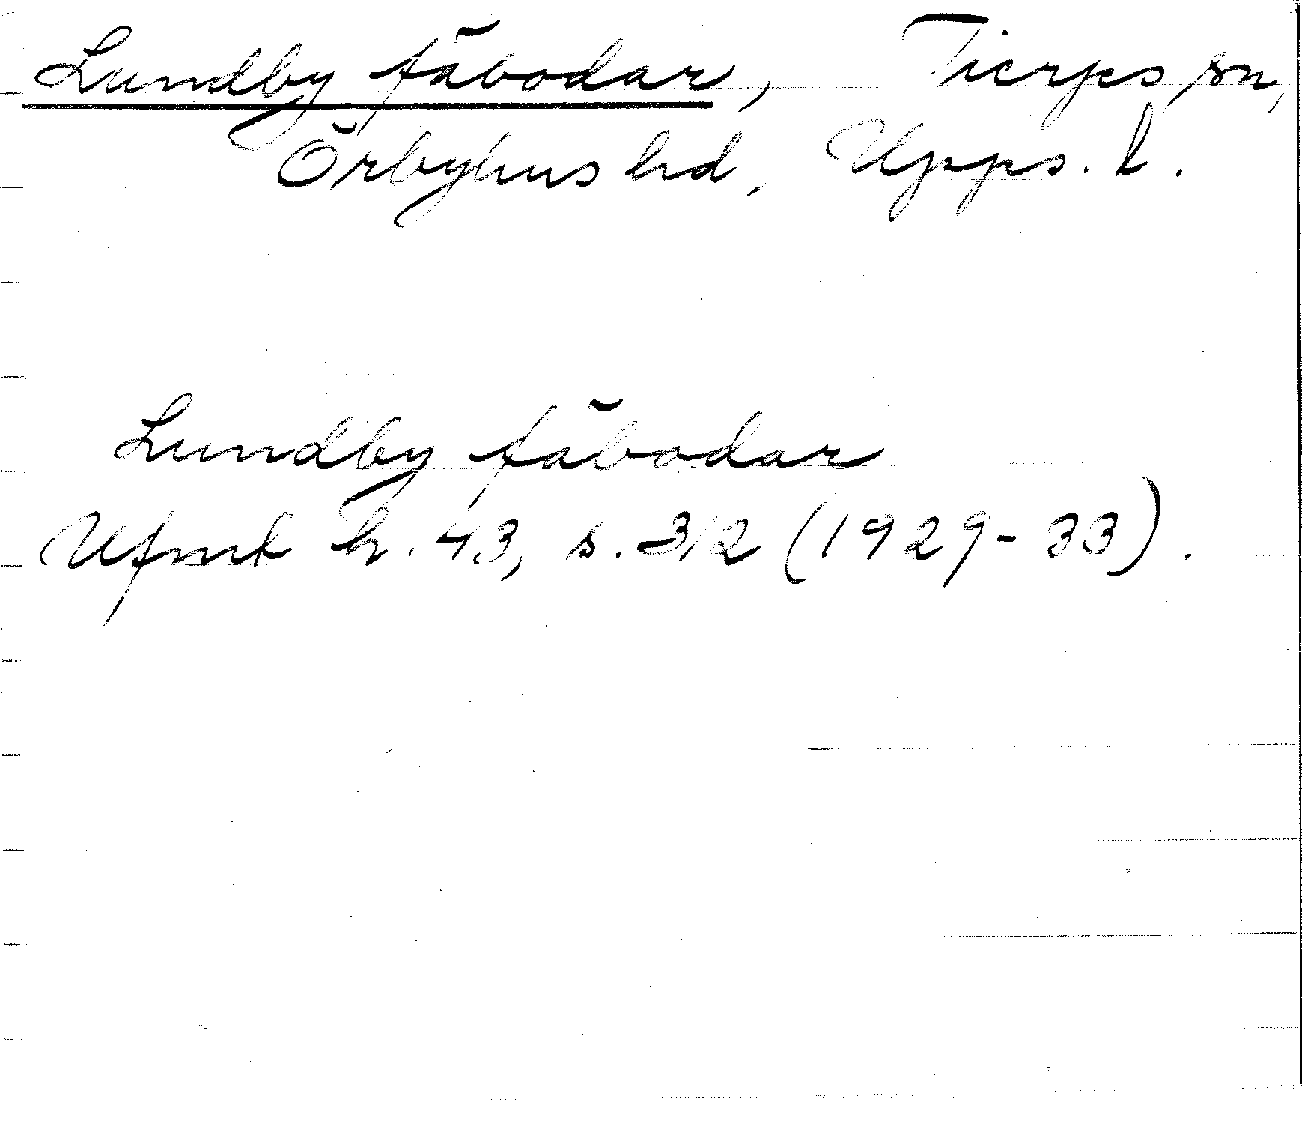 Lundby fäbodar, Tierps sn,
Örbyhus hd, Upps. l.
Lundby fäbodar
Ufmt h. 43, s. 312 (1929-33).